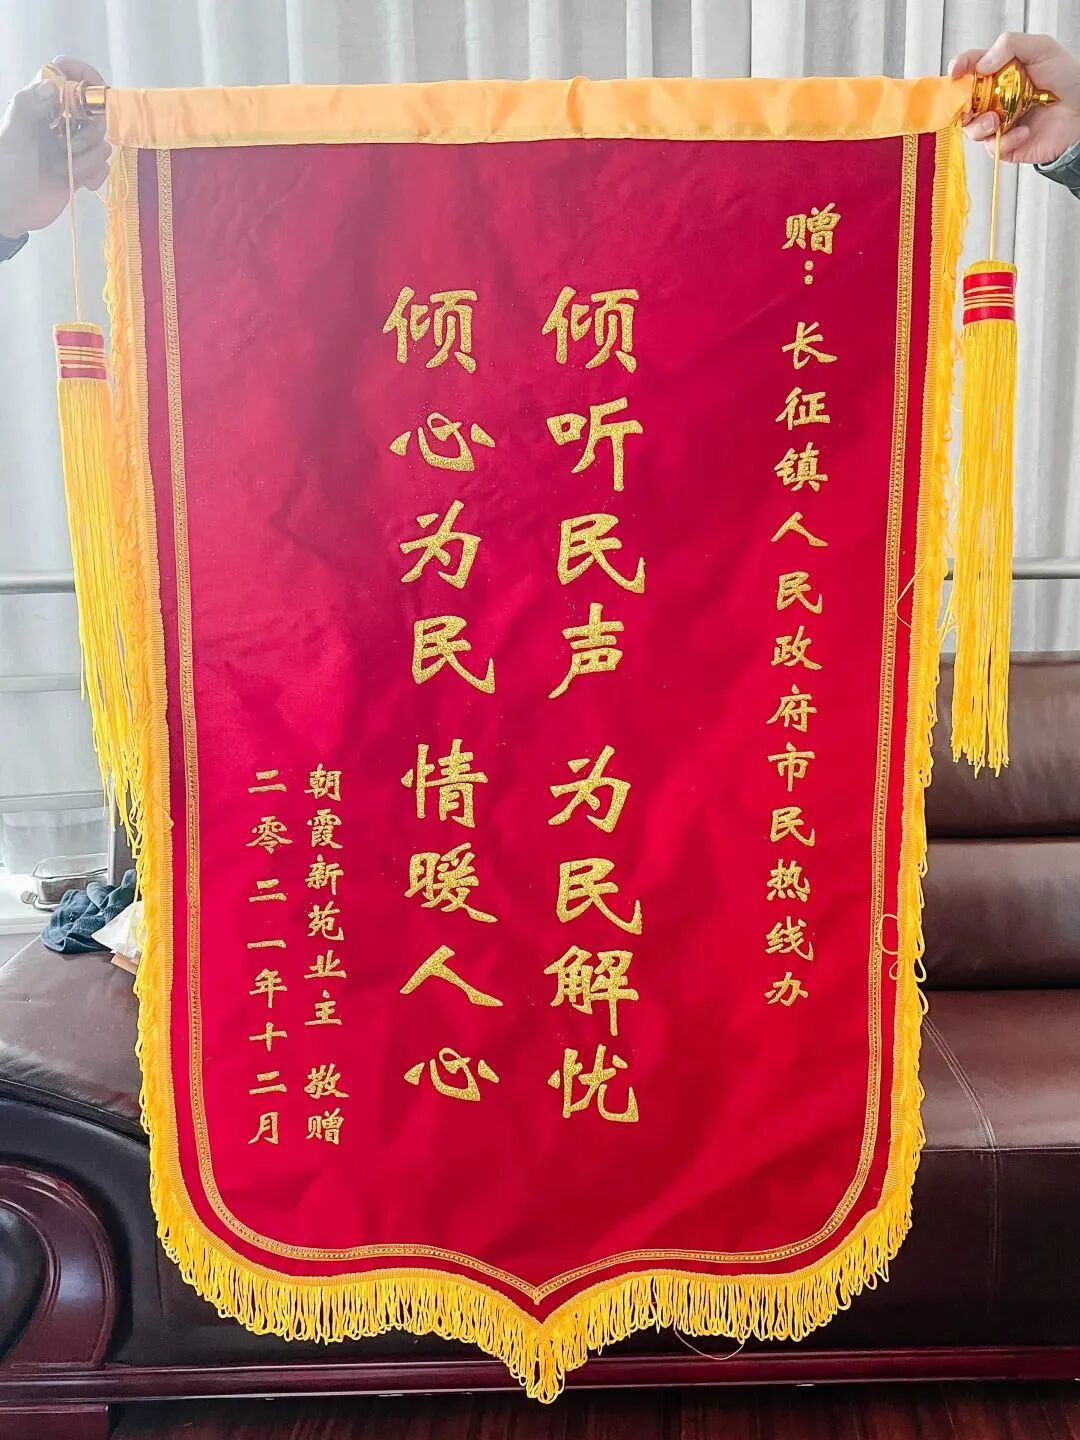 赠：长征镇人民政府市民热线办
倾听民声 为民解忧
倾心为民 情暖人心
朝霞新苑业主 敬赠
二零二一年十二月